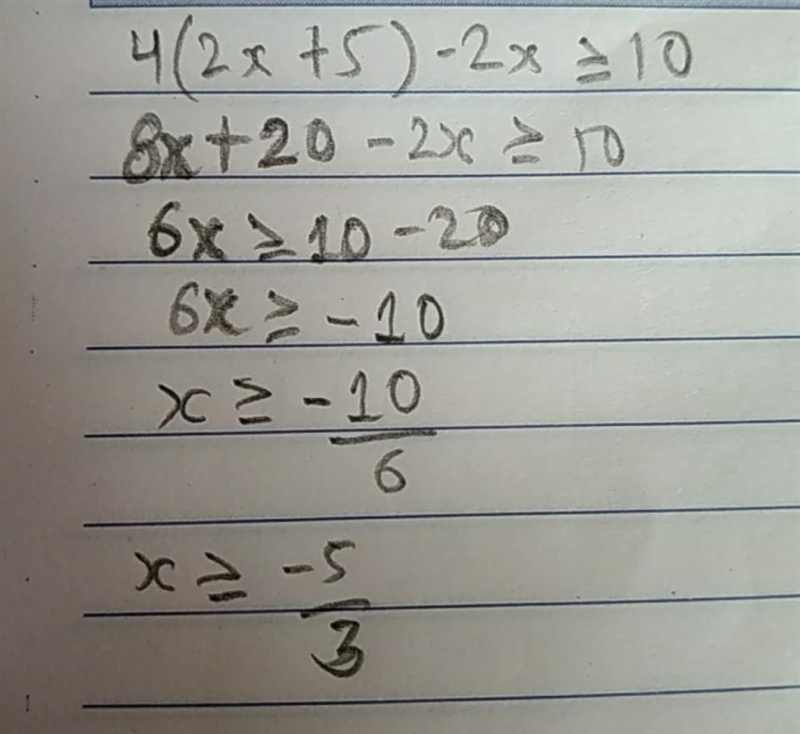 4(2x+5)-2x ≥ 10
8x+20-2x ≥ 10
6x ≥ 10-20
6x ≥ -10
x ≥ -10/6
x ≥ -5/3